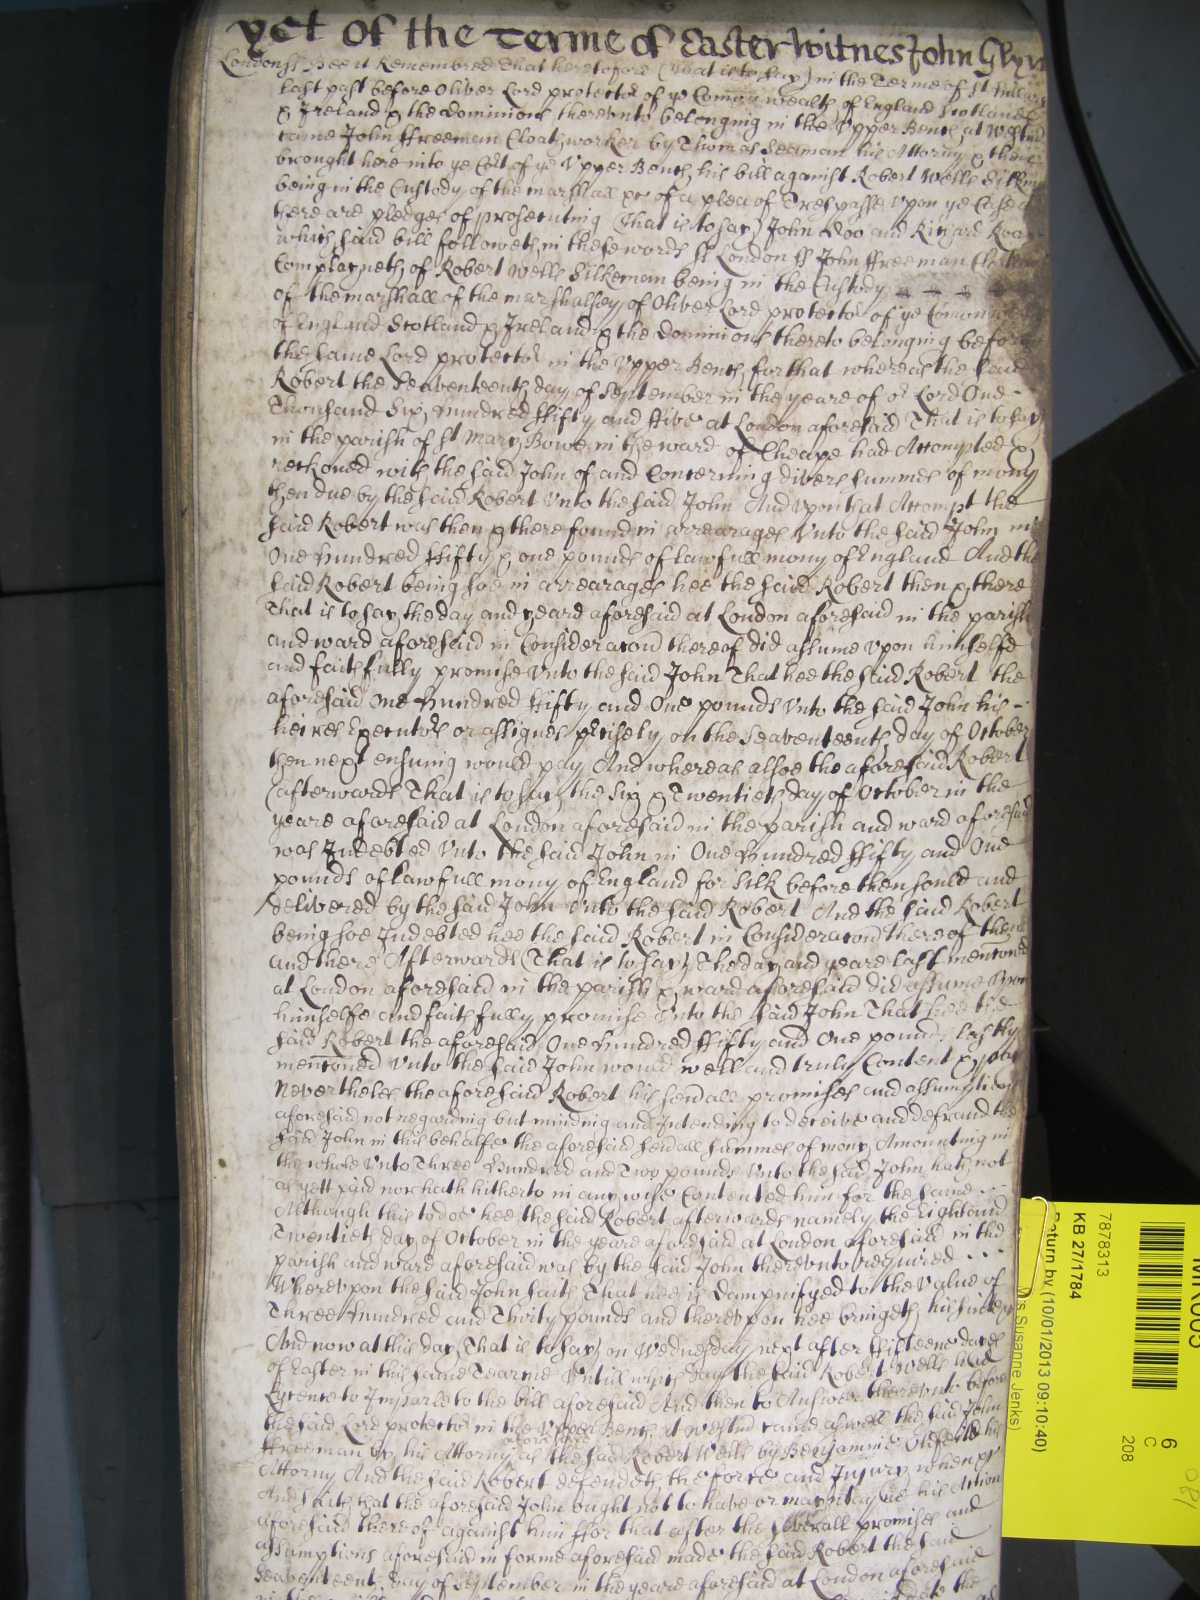 yet of the Terme of Easter Witnes John Glyn
London ss Bee it Remembred That heretofore (that is to say) in the Terme of St Hillary
last past before Oliver Lord protector of ye Comonwealth of England Scotland
& Ireland & the dominions therevnto belonging in the Vpper Bench at Westm
came John ffreeman Cloathworker by Thomas Seaman his Attorny & then
brought here into ye Cort of ye Vpper Bench his bill against Robert Wells Silkm
being in the Custody of the marshall &c of a plea of Trespasse vpon ye Case
there are pledges of prosecuting (That is to say) John Doo and Richard Roo
which said bill followeth in these words ss London ss John ffreeman
Complayneth of Robert Wells Silkeman being in the Custody
of the marshall of the marshalsey of Oliver Lord protector of ye Comonwe
of England Scotland & Ireland & the dominions thereto belonging before
the same Lord protector in the Vpper Bench for that whereas the said
Robert the Seaventeenth day of September in the yeare of or Lord One
Thousand Six Hundred ffifty and ffive at London aforesaid That is to say
in the parish of St Mary Bowe in the ward of Cheape had Attompted &
reckoned with the said John of and Concerning divers summes of mony
then due by the said Robert Vnto the said John And Vpon that Attompt the
said Robert was then & there found in arrearages Vnto the said John in
One Hundred ffifty & one pounds of lawfull mony of England And the
said Robert being soe in arrearages hee the said Robert then & there
That is to say the day and yeare aforesaid at London aforesaid in the parish
and ward aforesaid in Consideracon thereof did assume vpon himselfe
and faithfully promise Vnto the said John That hee the said Robert the
aforesaid One Hundred ffifty and One pounds Vnto the said John his
heires Executors or assignes precisely on the Seaventeenth day of October
then next ensuing would pay And whereas alsoe the aforesaid Robert
(afterwards That is to say) the Six & Twentieth day of October in the
yeare aforesaid at London aforesaid in the parish and ward aforesaid
was Indebted Vnto the said John in One Hundred ffifty and One
pounds of lawfull mony of England for Silk before then sould and
delivered by the said John Vnto the said Robert And the said Robert
being soe Indebted hee the said Robert in Consideracon thereof then
and there Afterwards (That is to say) The day and yeare last mentoned
at London aforesaid in the parish & ward aforesaid did assume Vpon
himselfe and faithfully promise Vnto the said John That hee the
said Robert the aforesaid One Hundred ffifty and One pounds lastly
mentoned Vnto the said John would well and truly Content & pay
Nevertheles the aforesaid Robert his sevall promises and assumptions
aforesaid not regarding but minding and Intending to deceive and defraud the
said John in this behalfe the aforesaid sevall summes of mony Amounting in
the whole Vnto Three Hundred and Two pounds Vnto the said John hath not
as yett paid nor hath hitherto in any wise Contented him for the same
Although this to doe hee the said Robert afterwards namely the Eight and
Twentieth day of October in the yeare aforesaid at London aforesaid in the
parish and ward aforesaid was by the said John therevnto required
Wherevpon the said John saith That hee is Dampnifyed to the value of
Three Hundred and Thirty pounds and therevpon hee bringeth his suite
And now at this day (That is to say) on Wednesday next after ffifteene dayes
of Easter in this same Tearme Vntill which day the said Robert Wells had
Lycence to Imparle to the bill aforesaid And then to Answer therevnto before
the said Lord protector in the Vpper Bench at Westm came aswell the said John
ffreeman by his Attorny aforesaid as the said Robert Wells by Benjamin Oldfeild his
Attorny And the said Robert defendeth the force and Injury when &c
And saith that the aforesaid John ought not to have or mayntayne his Action
aforesaid thereof against him ffor that after the severall promises and
assumptions aforesaid in forme aforesaid made the said Robert the said
Seaventeenth day of September in the yeare aforesaid at London aforesaid
7878313
KB 27/1784
Return by (10/01/2013 09:10:40)
Susanne Jenks)
6
C
208